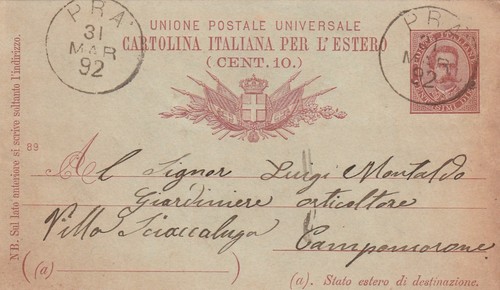 PRA'
31
MAR
92
UNIONE POSTALE UNIVERSALE
CARTOLINA ITALIANA PER L'ESTERO
(CENT. 10.)
PRA'
MAR
92
89
Al Signor Luigi Montaldo
Giardiniere orticoltore
Villa Sciaccaluga Campomorone
(a)
(a). Stato estero di destinazione.
NB. Sul lato anteriore si scrive soltanto l'indirizzo.